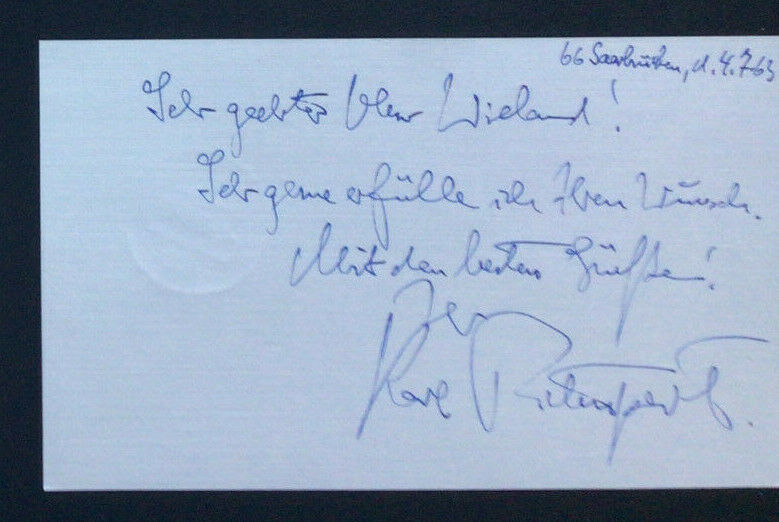 66 Saarbrücken, d. 4.7.63
Sehr geehrter Herr Wieland!
Sehr gerne erfülle ich Ihren Wunsch.
Mit den besten Grüßen!
Ihr
Karl